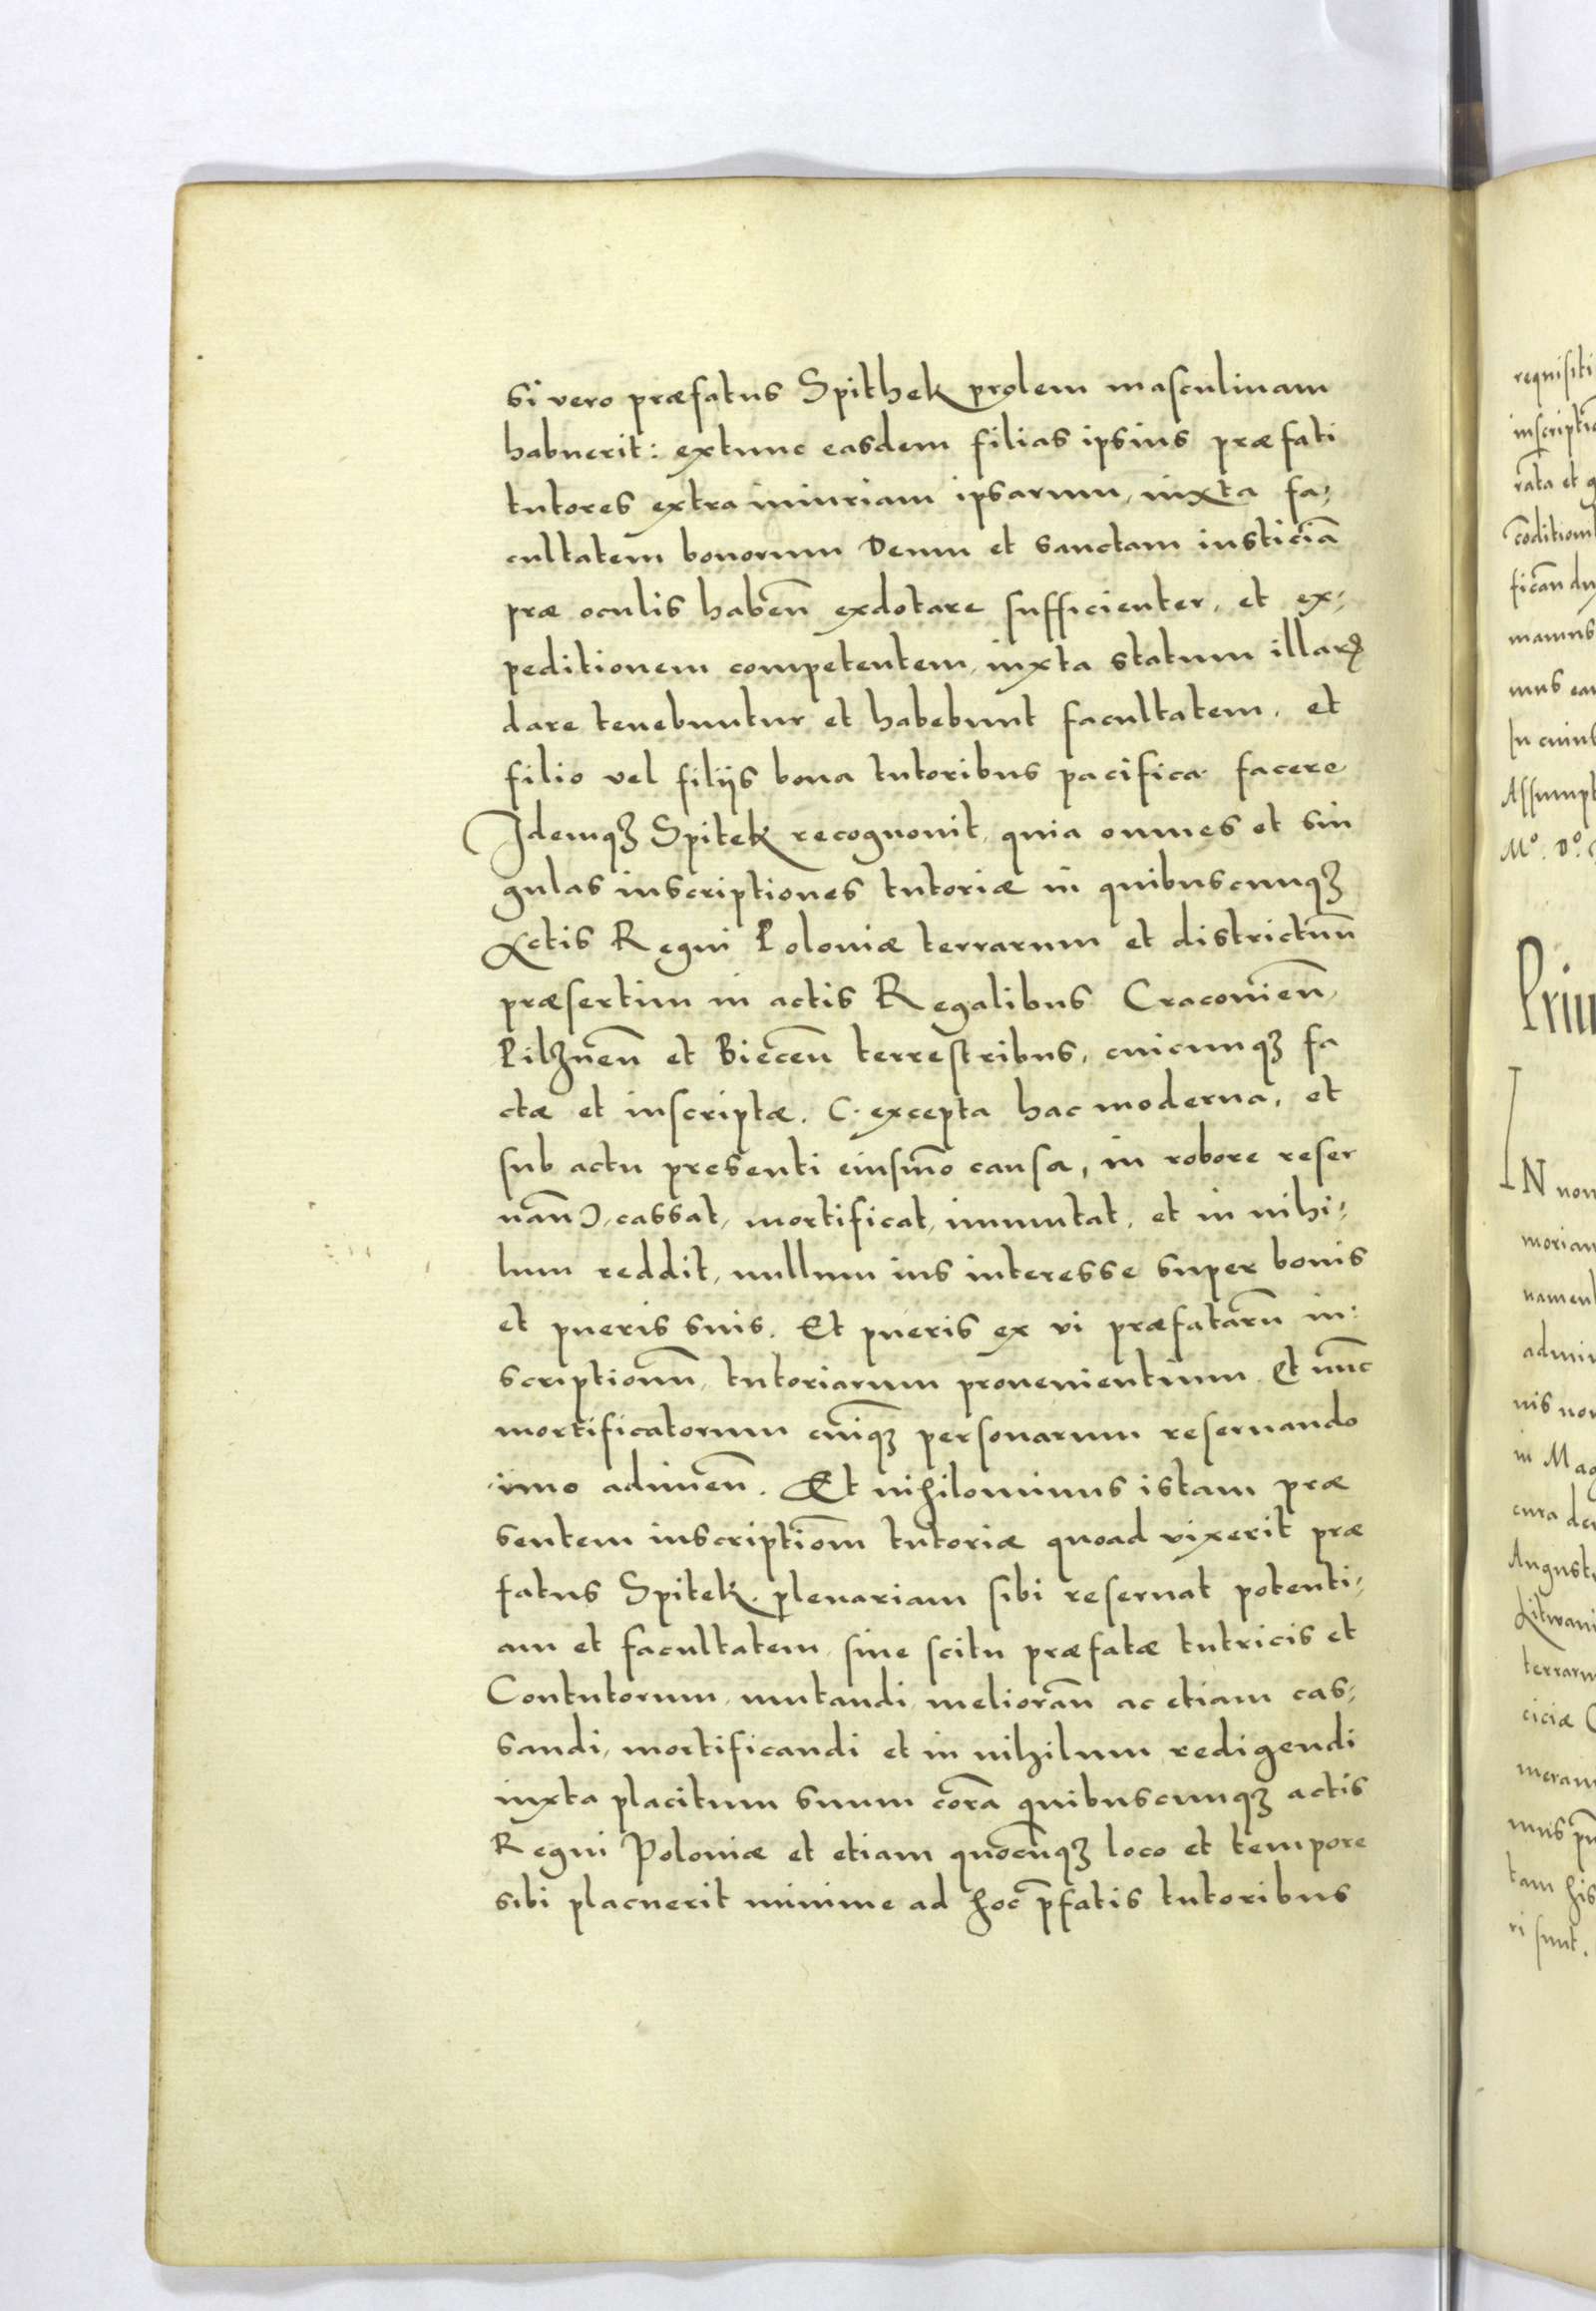 si vero præfatus Spithek prolem masculinam
habuerit: extunc easdem filias ipsius præfati
tutores extra iniuriam ipsarum, iuxta fa;
cultatem bonorum Deum et sanctam iusticiā
præ oculis habeñ exdotare sufficienter, et ex;
peditionem competentem, iuxta statum illarꝝ
dare tenebuntur et habebunt facultatem, et
filio vel filijs bona tutoribus pacifica facere
Idemqꝫ Spitek recognouit, quia omnes et sin
gulas inscriptiones tutoriæ in quibuscunqꝫ
Actis Regni Poloniæ terrarum et districtuū
præsertim in actis Regalibus Cracouieñ,
Pilzneñ et Bieceñ terrestribus, cuicunqꝫ fa
ctæ et inscriptæ. C. excepta hac moderna, et
sub actu presenti eiusmō causa, in robore reser
uañ Ɔ, cassat, mortificat, immutat, et in nihi;
lum reddit, nullum ius interesse super bonis
et pueris suis. Et pueris ex vi præfatarū in:
scriptionū, tutoriarum prouenientium Et nūc
mortificatorum cuiqꝫ personarum reseruando
imo adimeñ. Et nihilominus istam præ
sentem inscriptiōm tutoriæ quoad vixerit præ
fatus Spitek, plenariam sibi reseruat potenti;
am et facultatem, sine scitu præfatæ tutricis et
Contutorum, mutandi, meliorañ ac etiam cas;
sandi, mortificandi et in nihilum redigendi
iuxta placitum suum corā quibuscunqꝫ actis
Regni Poloniæ et etiam quocūqꝫ loco et tempore
sibi placuerit minime ad hoc p̄fatis tutoribus
requisiti
rata et
manus
Assumpt
Mº. Dº.
IN non
admin
nis non
in Mag
cura
August
Lituani
terraru
ciciæ
tam his
ri sunt.